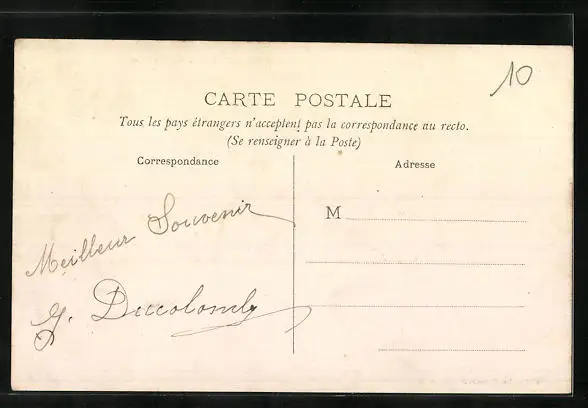 10
CARTE POSTALE
Tous les pays étrangers n'acceptent pas la correspondance au recto.
(Se renseigner à la Poste)
Correspondance
Adresse
M
Meilleur Souvenir